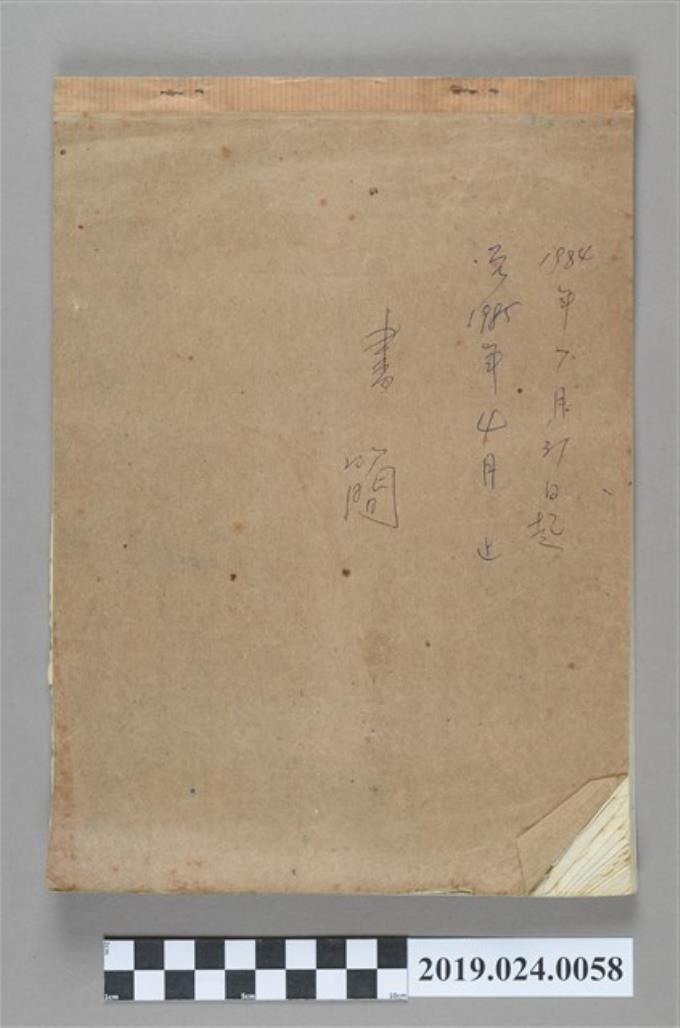 1984年7月31日起
1985年4月止
書簡
2cm
1cm
5cm
10cm
2019.024.0058